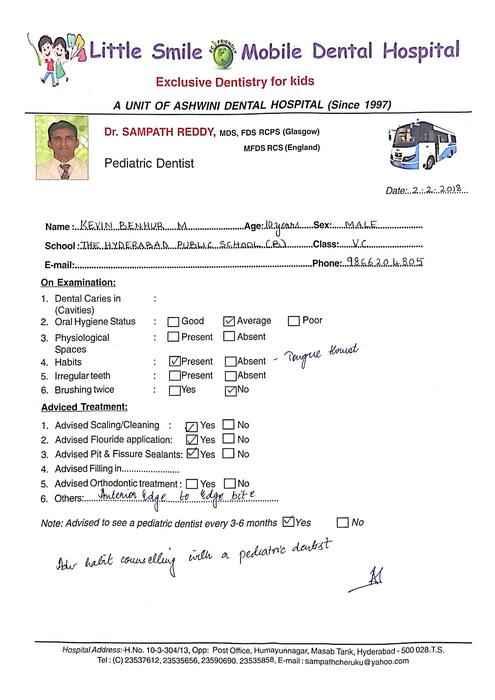 Little Smile Mobile Dental Hospital
Exclusive Dentistry for kids
A UNIT OF ASHWINI DENTAL HOSPITAL (Since 1997)
Dr. SAMPATH REDDY, MDS, FDS RCPS (Glasgow)
MFDS RCS (England)
Pediatric Dentist
Date: 2-2-2018
Name: KEVIN BENHUR M Age: 10 years Sex: MALE
School: THE HYDERABAD PUBLIC SCHOOL (B) Class: V C
E-mail: Phone: 9866204805
On Examination:
1. Dental Caries in :
(Cavities)
2. Oral Hygiene Status : Good Average Poor
3. Physiological : Present Absent
Spaces
4. Habits : Present Absent - Tongue thrust
5. Irregular teeth : Present Absent
6. Brushing twice : Yes No
Adviced Treatment:
1. Advised Scaling/Cleaning : Yes No
2. Advised Flouride application: Yes No
3. Advised Pit & Fissure Sealants: Yes No
4. Advised Filling in
5. Advised Orthodontic treatment : Yes No
6. Others: Anterior Edge to Edge bite
Note: Advised to see a pediatric dentist every 3-6 months Yes No
Adv habit counselling with a pediatric dentist
Hospital Address:-H.No. 10-3-304/13, Opp: Post Office, Humayunnagar, Masab Tank, Hyderabad - 500 028.T.S.
Tel : (C) 23537612, 23535656, 23590690. 23535858, E-mail : sampathcheruku@yahoo.com